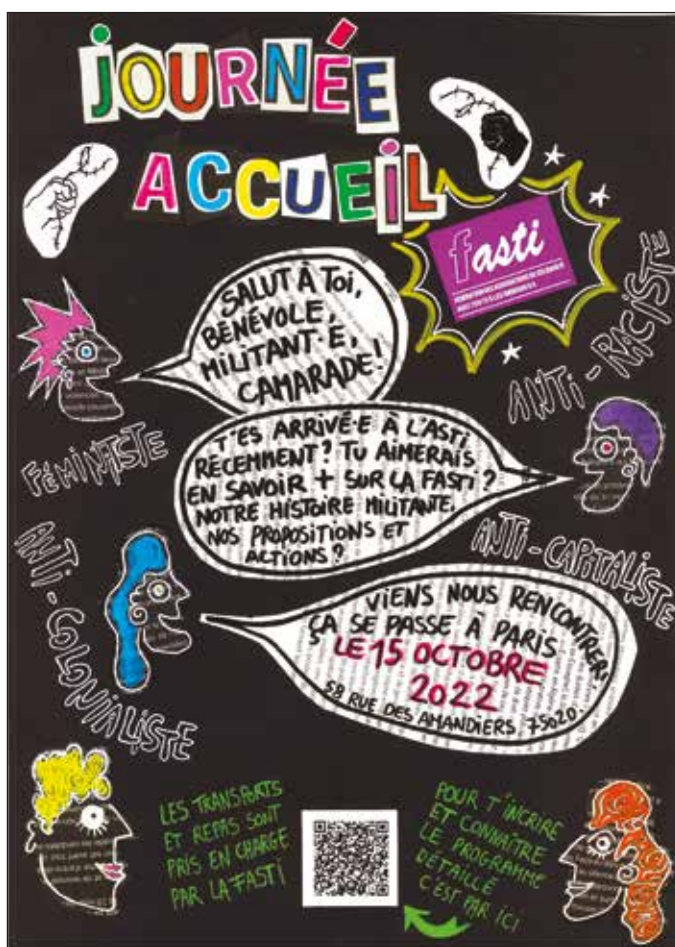 JOURNÉE
ACCUEIL
fasti
SALUT À TOI,
BÉNÉVOLE,
MILITANT·E,
CAMARADE!
ANTI-RACISTE
FÉMINISTE
T'ES ARRIVÉ·E À L'ASTI
RÉCEMMENT? TU AIMERAIS
EN SAVOIR + SUR LA FASTI?
NOTRE HISTOIRE MILITANTE,
NOS PROPOSITIONS ET
ACTIONS?
ANTI-CAPITALISTE
ANTI-COLONIALISTE
VIENS NOUS RENCONTRER!
ÇA SE PASSE À PARIS
LE 15 OCTOBRE
2022
58 RUE DES AMANDIERS 75020.
LES TRANSPORTS
ET REPAS SONT
PRIS EN CHARGE
PAR LA FASTI
POUR T'INCRIRE
ET CONNAÎTRE
LE PROGRAMME
DÉTAILLÉ
C'EST PAR ICI